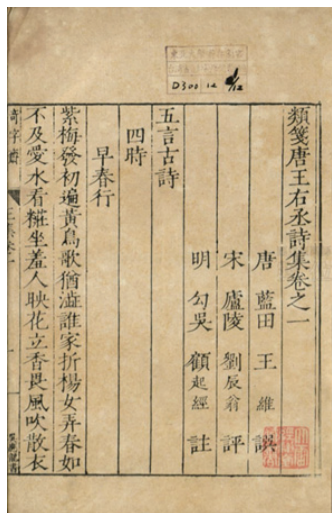 D300 12
類箋唐王右丞詩集卷之一
唐 藍田 王維 譔
宋 廬陵 劉辰翁 評
明 勾吳 顧起經 註
五言古詩
四時
早春行
紫梅發初遍黃鳥歌猶澁誰家折楊女弄春如
不及愛水看糚坐羞人映花立香畏風吹散衣
奇字齋